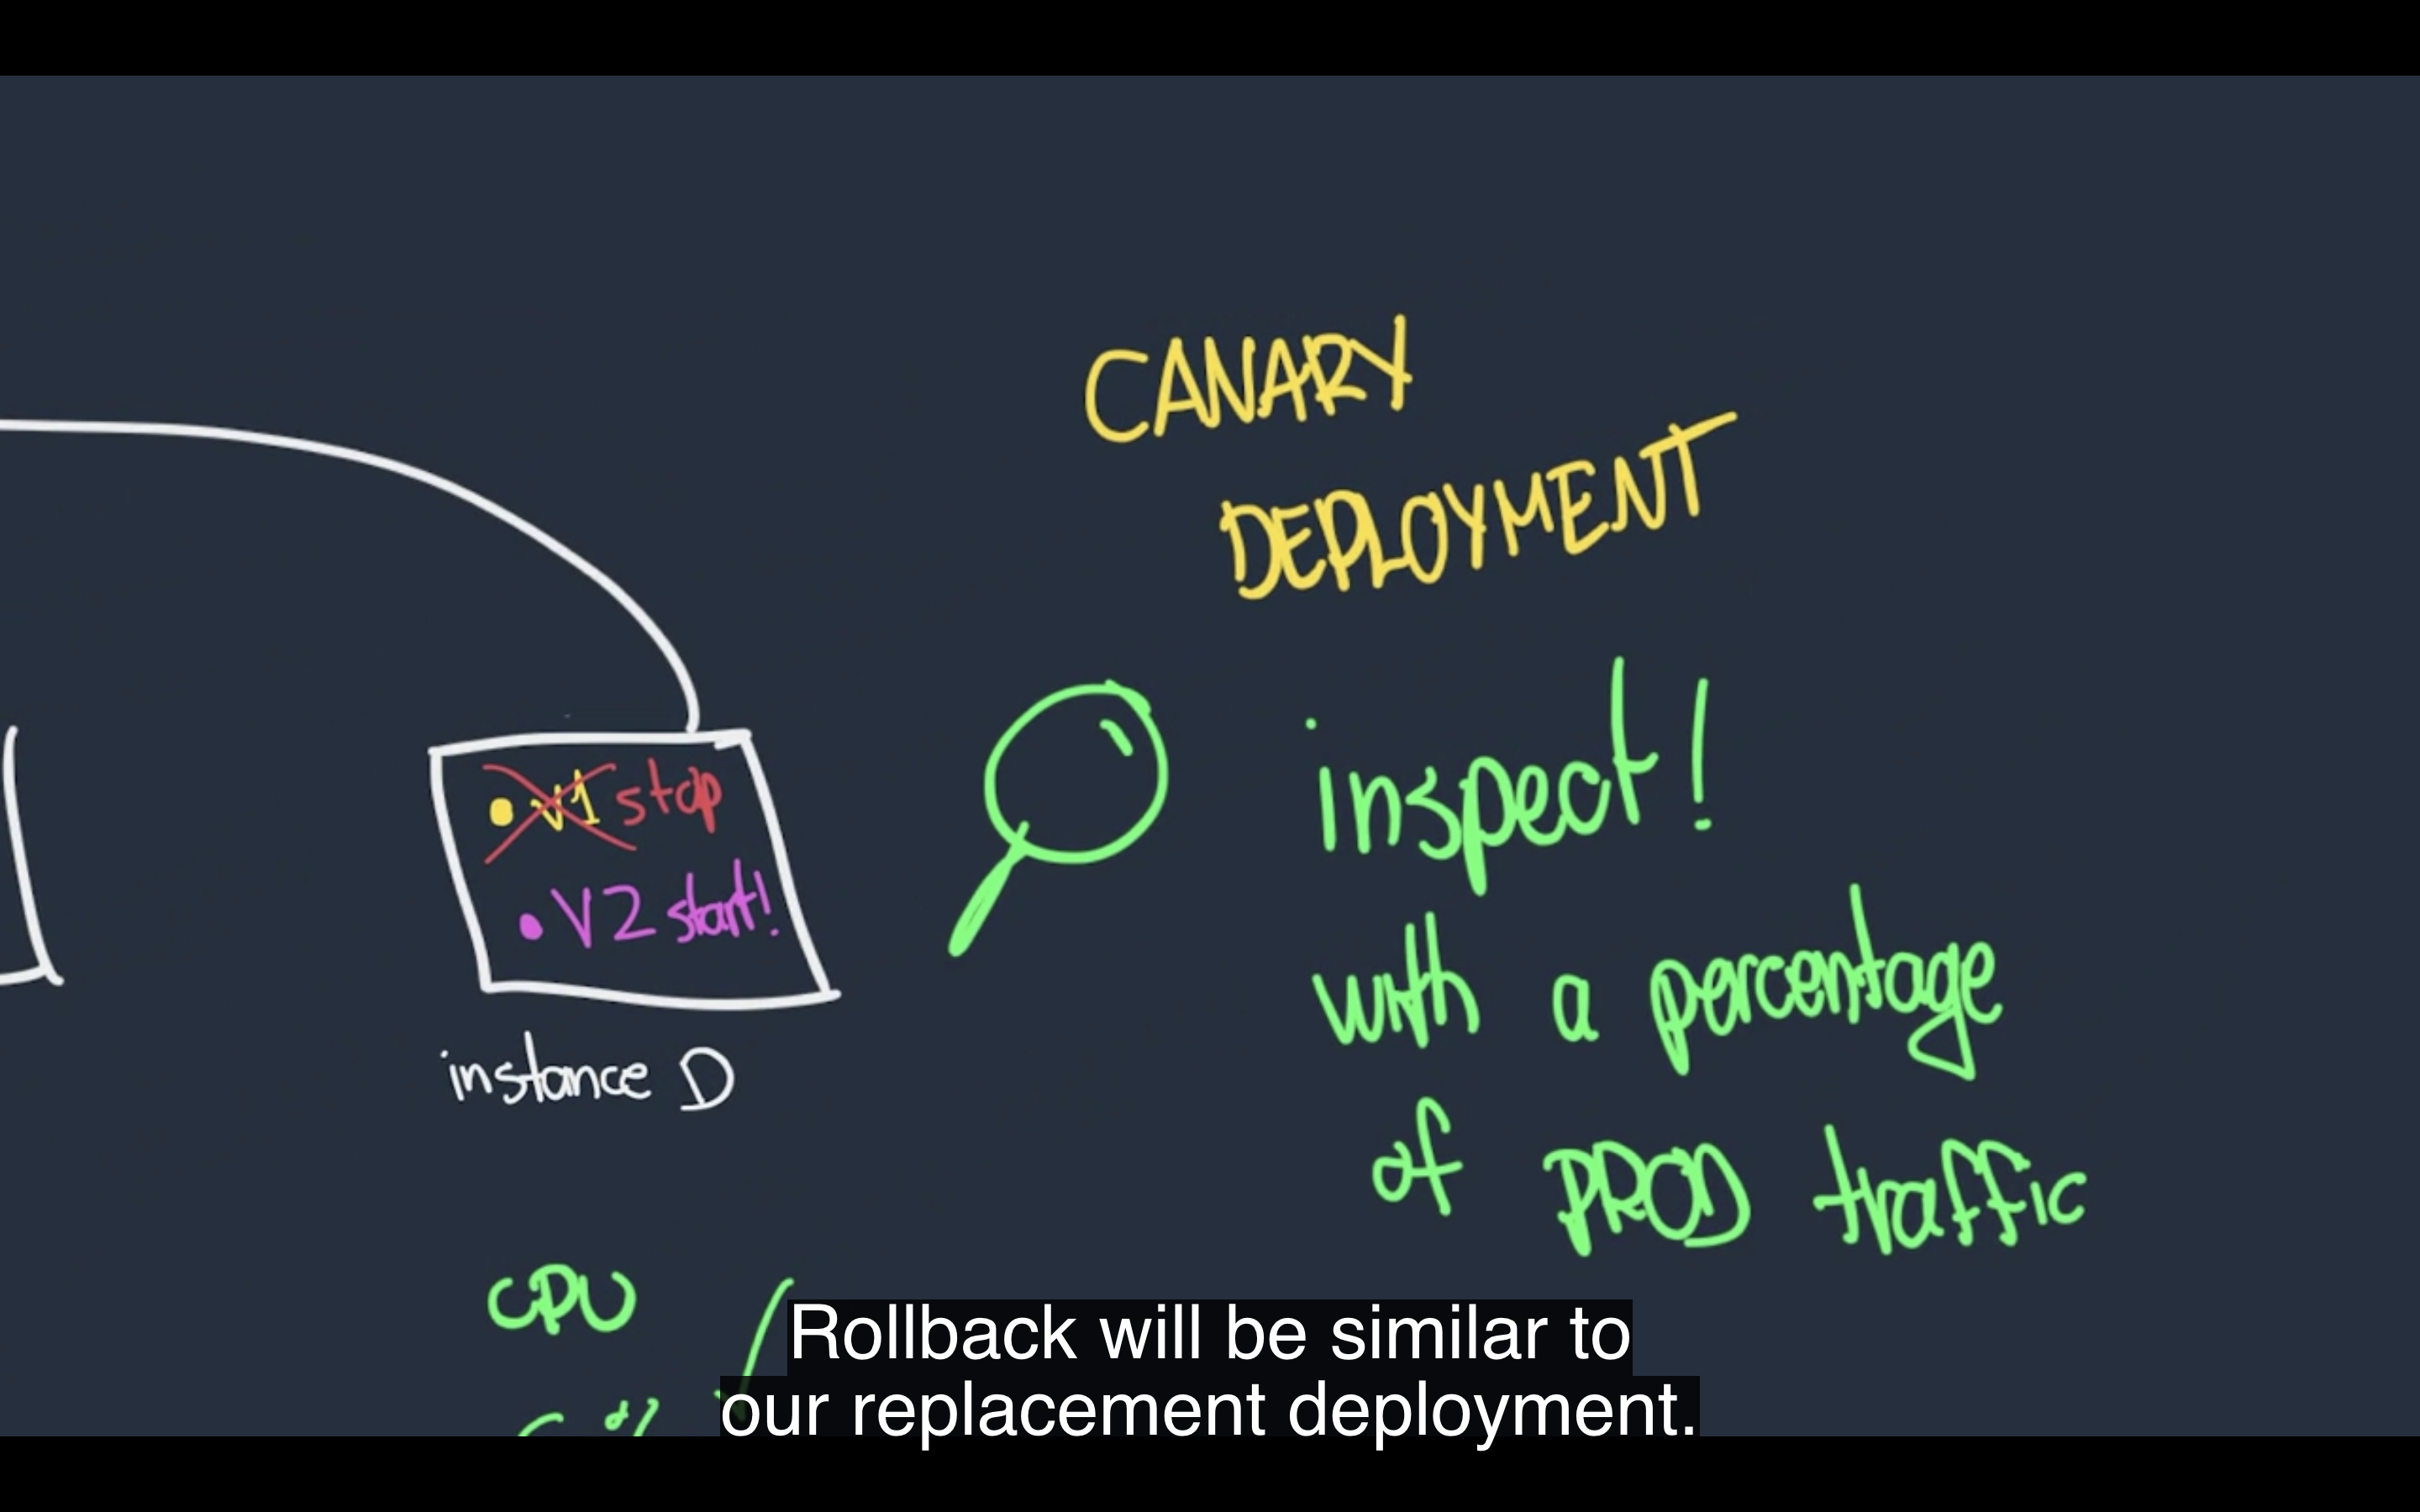 CANARY
DEPLOYMENT
• v1 stop
• V2 start!
instance D
inspect!
with a percentage
of PROD traffic
CPU
Rollback will be similar to
our replacement deployment.